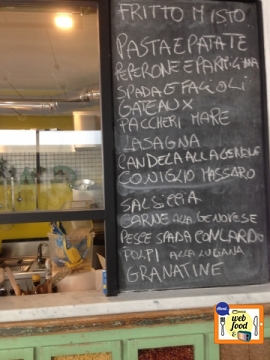 FRITTO MISTO
PASTA E PATATE
PEPERONE E PARMIGIANA
SPADA E FAGIOLI
GATEAUX
PACCHERI MARE
LASAGNA
CANDELA ALLA GENOVESE
CONIGLIO MASSARO
SALSICCIA
CARNE ALLA GENOVESE
PESCE SPADA CON LARDO
POLPI ALLA LUCIANA
GRANATINE
web
food